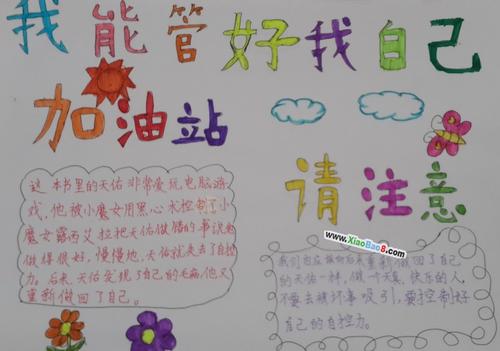 我能管好我自己
加油站
请注意
www.XiaoBao8.com
这本书里的天佑非常爱玩电脑游
戏，他被小魔女用黑心术控制了，小
魔女露西艾拉把天佑做错的事说成
做得很好，慢慢地，天佑就失去了自控
力。后来，天佑发现了自己的毛病，他又
重新做回了自己。
我们也应该向后来重新做回了自己
的天佑一样，做一个天真、快乐的人，
不要去被坏事吸引，要控制好
自己的自控力。